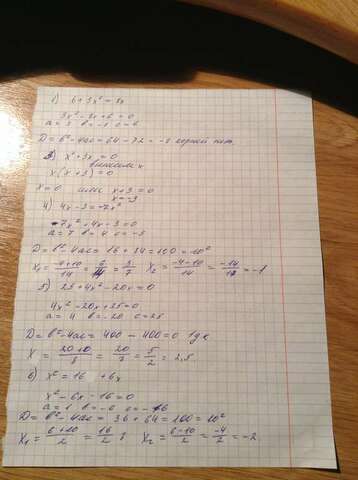 1) 6+3x² = 8x
3x² - 8x + 6 = 0
a = 3 b = -8 c = 6
D = b² - 4ac = 64 - 72 = -8 корней нет.
3) x² + 3x = 0
выносим x
x(x+3) = 0
x = 0 или x+3 = 0
x = -3
4) 4x - 3 = -7x²
7x² + 4x - 3 = 0
a = 7 b = 4 c = -3
D = b² - 4ac = 16 + 84 = 100 = 10²
x₁ = -4+10/14 = 6/14 = 3/7 x₂ = -4-10/14 = -14/14 = -1
5) 25 + 4x² - 20x = 0
4x² - 20x + 25 = 0
a = 4 b = -20 c = 25
D = b² - 4ac = 400 - 400 = 0
X = 20+0/8 = 20/8 = 5/2 = 2,5
6) x² = 16 + 6x
x² - 6x - 16 = 0
a = 1 b = -6 c = -16
D = b² - 4ac = 36 + 64 = 100 = 10²
X₁ = 6+10/2 = 16/2 = 8 X₂ = 6-10/2 = -4/2 = -2